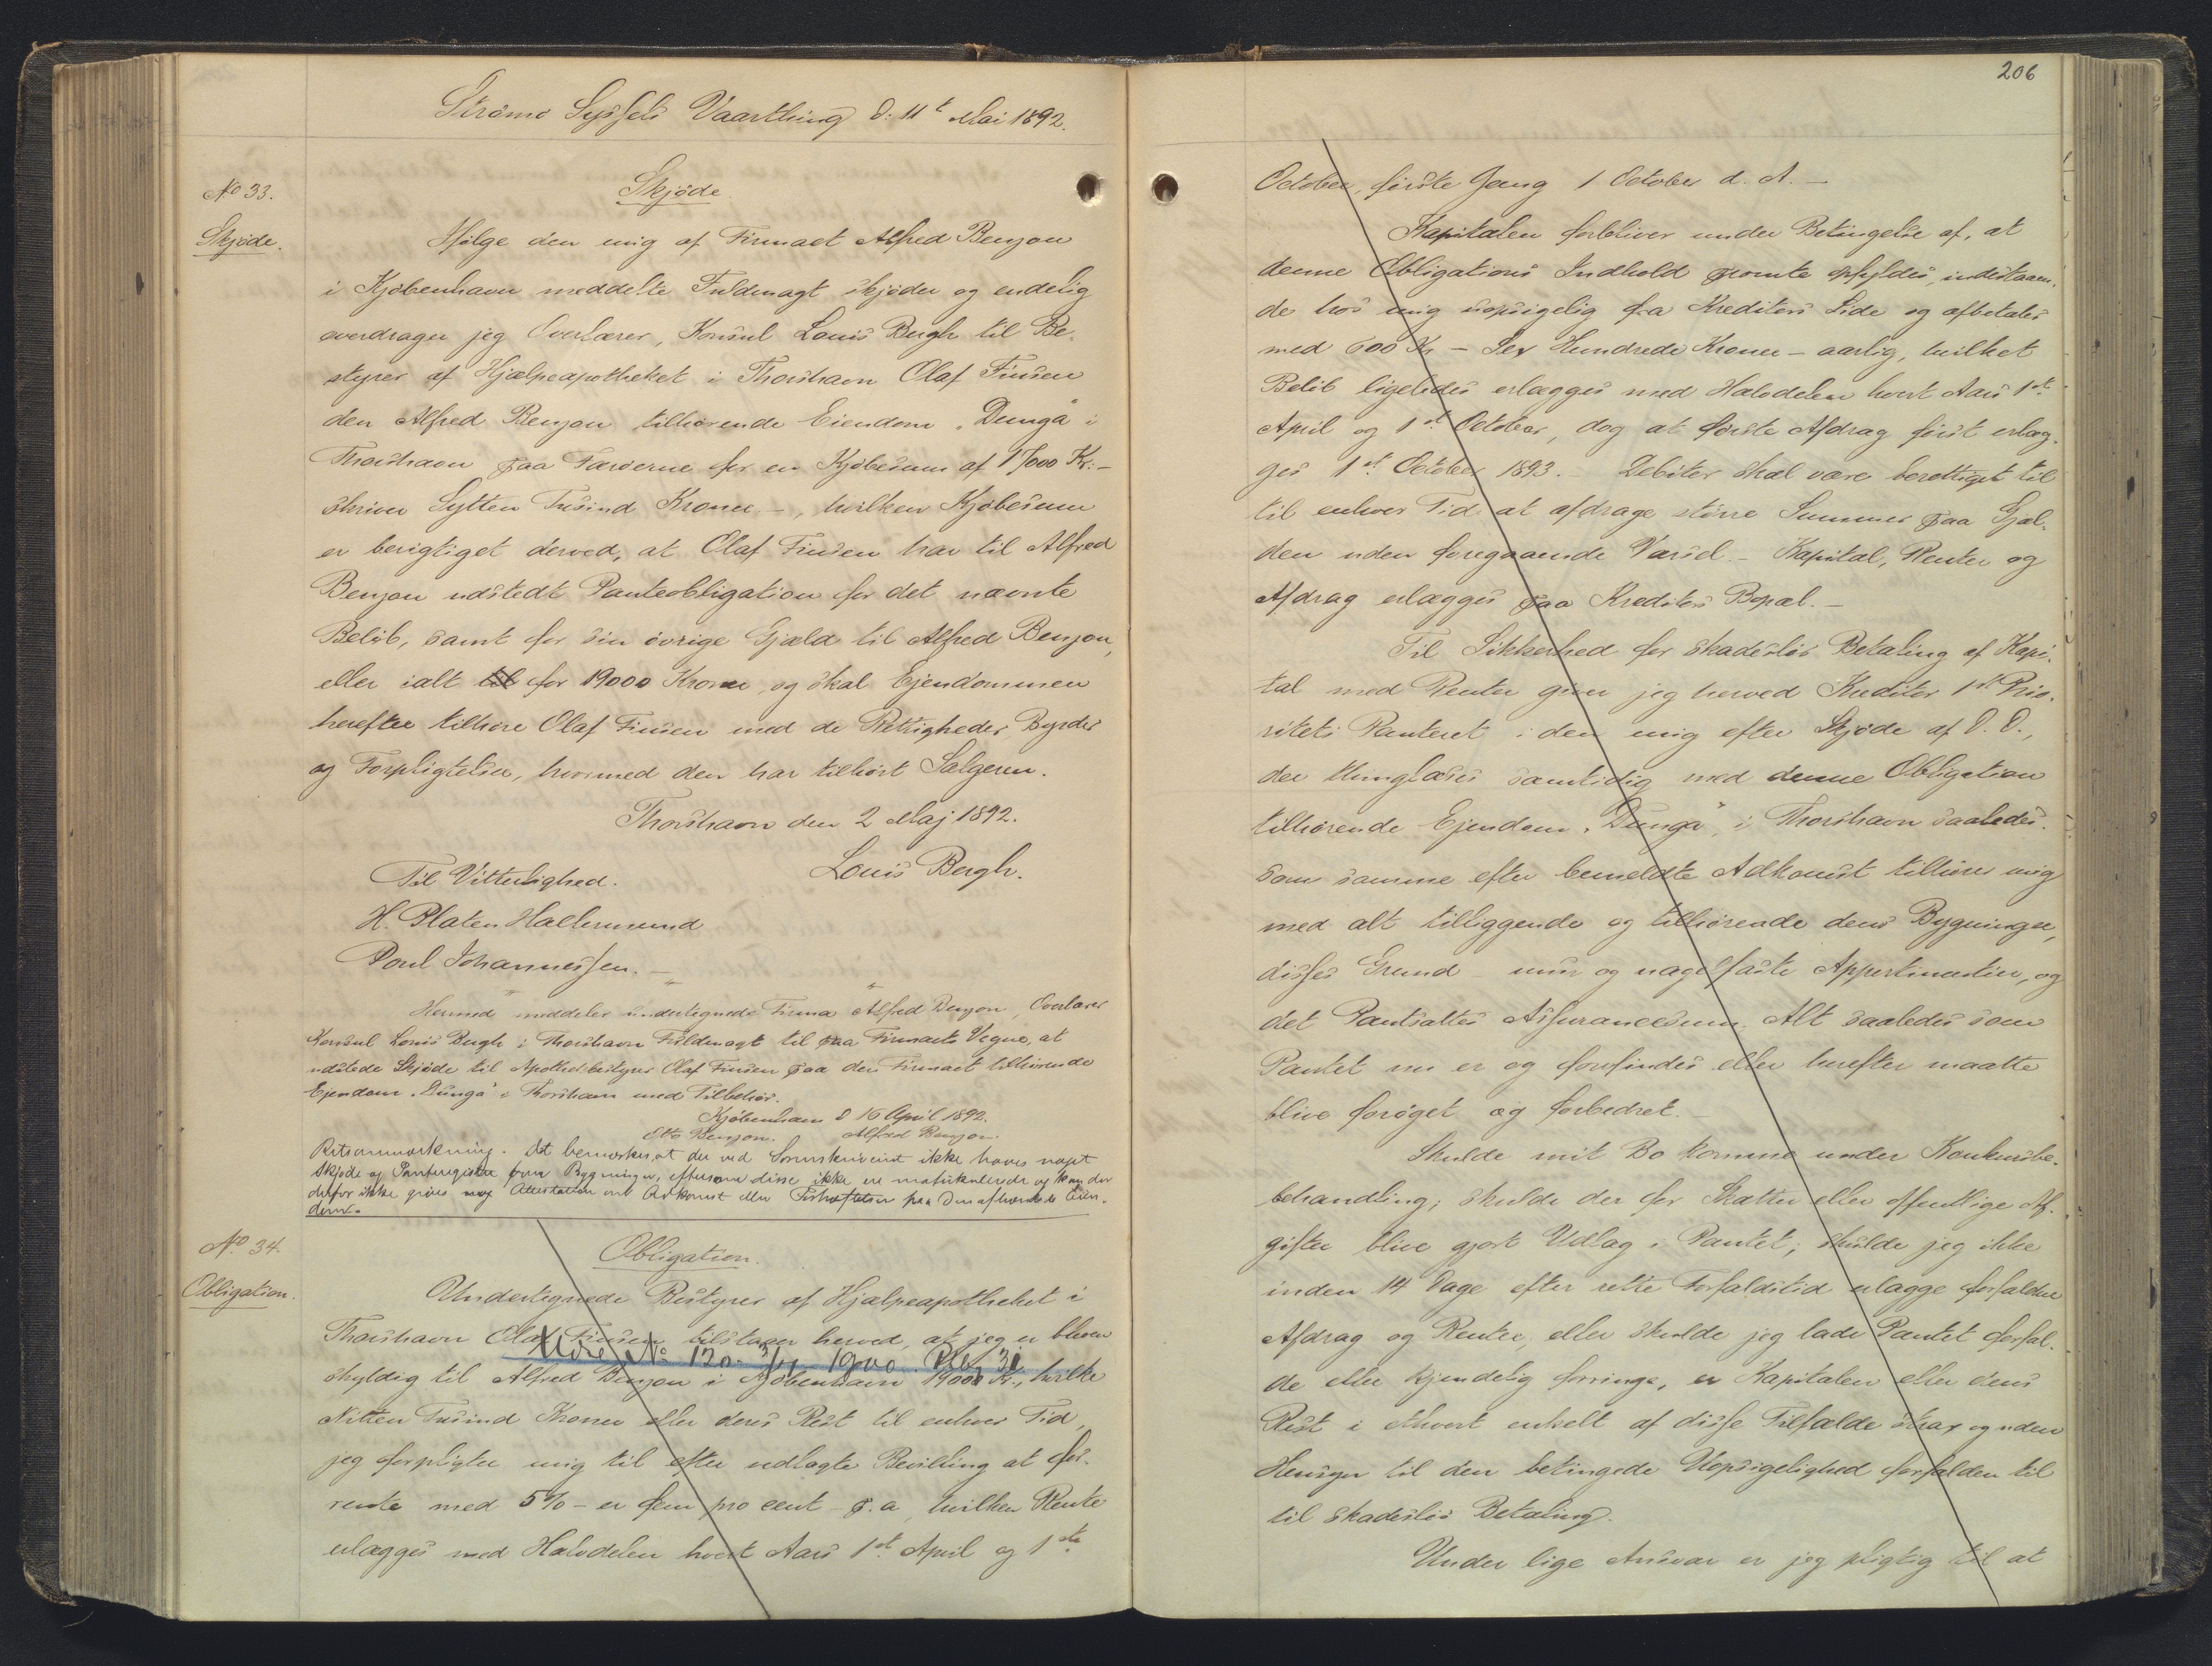 Strømø Syssels Vaarthing d. 11t Mai 1892.
No 33.
Skjøde.
Skjøde.
Ifølge den mig af Firmaet Alfred Benzon
i Kjøbenhavn meddelte Fuldmagt skjøder og endelig
overdrager jeg Overlærer, Konsul Louis Bergh til Be-
styrer af Hjælpeapotheket i Thorshavn Olaf Finsen
den Alfred Benzon tilhørende Eiendom "Dunga" i
Thorshavn paa Færøerne for en Kjøbesum af 17000 Kr. -
skriver Sytten Tusind Kroner -, hvilken Kjøbesum
er berigtiget derved, at Olaf Finsen har til Alfred
Benzon udstedt Panteobligation for det nævnte
Beløb, samt for sin øvrige Gjæld til Alfred Benzon,
eller ialt til for 19000 Kroner, og skal Ejendommen
herefter tilhøre Olaf Finsen med de Rettigheder, Byrder
og Forpligtelser, hvormed den har tilhørt Sælgeren.
Thorshavn den 2 Maj 1892.
Louis Bergh.
Til Vitterlighed.
H. Platen Hallermund
Poul Johannessen. -
Hermed meddeler undertegnede Firma Alfred Benzon, Overlærer
Konsul Louis Bergh i Thorshavn Fuldmagt til paa Firmaets Vegne, at
udstede Skjøde til Apothekbestyrer Olaf Finsen paa den Firmaet tilhørende
Ejendom "Dunga" i Thorshavn med Tilbehør.
Kjøbenhavn d 16 April 1892.
Otto Benzon. Alfred Benzon.
Retsanmærkning. Det bemærkes, at der ved Sorenskriveriet ikke haves noget
Skjøde og Panteregister over Bygninger, eftersom disse ikke ere matrikulerede og kan der
derfor ikke gives nog Attestation om Adkomst eller Forhæftelser paa den afhændede Eien-
dom.
No 34.
Obligation.
Obligation.
Undertegnede Bestyrer af Hjælpeapotheket i
Thorshavn Olaf Finsen tilstaaer herved, at jeg er bleven
No 130 1900
skyldig til Alfred Benzon i Kjøbenhavn 19000 Kr., hvilke
Nitten Tusind Kroner eller deres Rest til enhver Tid,
jeg forpligter mig til efter udlagte Bevilling at for-
rente med 5% - er fem pro cent - p.a, hvilken Rente
erlægges med Halvdelen hvert Aars 1st April og 1ste
206
October, første Gang 1 October d. A. -
Kapitalen forbliver under Betingelse af, at
denne Obligations Indhold promte opfyldes, indstaaen-
de hos mig uopsigelig fra Kreditors Side og afbetales
med 600 Kr - Sex Hundrede Kroner - aarlig, hvilket
Beløb ligeledes erlægges med Halvdelen hvert Aars 1st
April og 1st October, dog at første Afdrag først erlæg-
ges 1st October 1893. - Debitor skal være berettiget til
til enhver Tid at afdrage større Summer paa Gjæl-
den uden foregaaende Varsel. - Kapital, Renter og
Afdrag erlægges paa Kreditors Bopæl. -
Til Sikkerhed for skadesløs Betaling af Kapi-
tal med Renter giver jeg herved Kreditor 1st Prio-
ritets Panteret i den mig efter Skjøde af D. D.,
der thinglæses samtidig med denne Obligation
tilhørende Ejendom "Dunga", i Thorshavn saaledes
som samme efter bemeldte Adkomst tilhører mig
med alt tilliggende og tilhørende dens Bygninger,
disses Grund - mur og nagelfaste Appertinentier, og
det Pantsattes Assurancesum. Alt saaledes som
Pantet nu er og forefindes eller herefter maatte
blive forøget og forbedret. -
Skulde mit Bo komme under Konkursbe-
behandling; skulde der for Skatter eller offentlige Af-
gifter blive gjort Udlæg i Pantet; skulde jeg ikke
inden 14 Dage efter rette Forfaldstid erlægge forfaldne
Afdrag og Renter, eller skulde jeg lade Pantet forfal-
de eller kjendelig forringe, er Kapitalen eller dens
Rest i ethvert enkelt af disse Tilfælde strax og uden
Hensyn til den betingede Uopsigelighed forfalden til
til skadesløs Betaling.
Under lige Ansvar er jeg pligtig til at